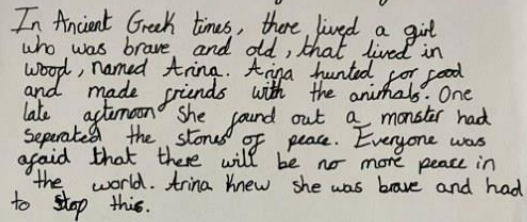 In Ancient Greek times, there lived a girl
who was brave and old, that lived in
wood, named Arina. Arina hunted for food
and made friends with the animals. One
late afternoon She found out a monster had
Seperated the stones of peace. Everyone was
afaid that there will be no more peace in
the world. Arina Knew she was brave and had
to stop this.